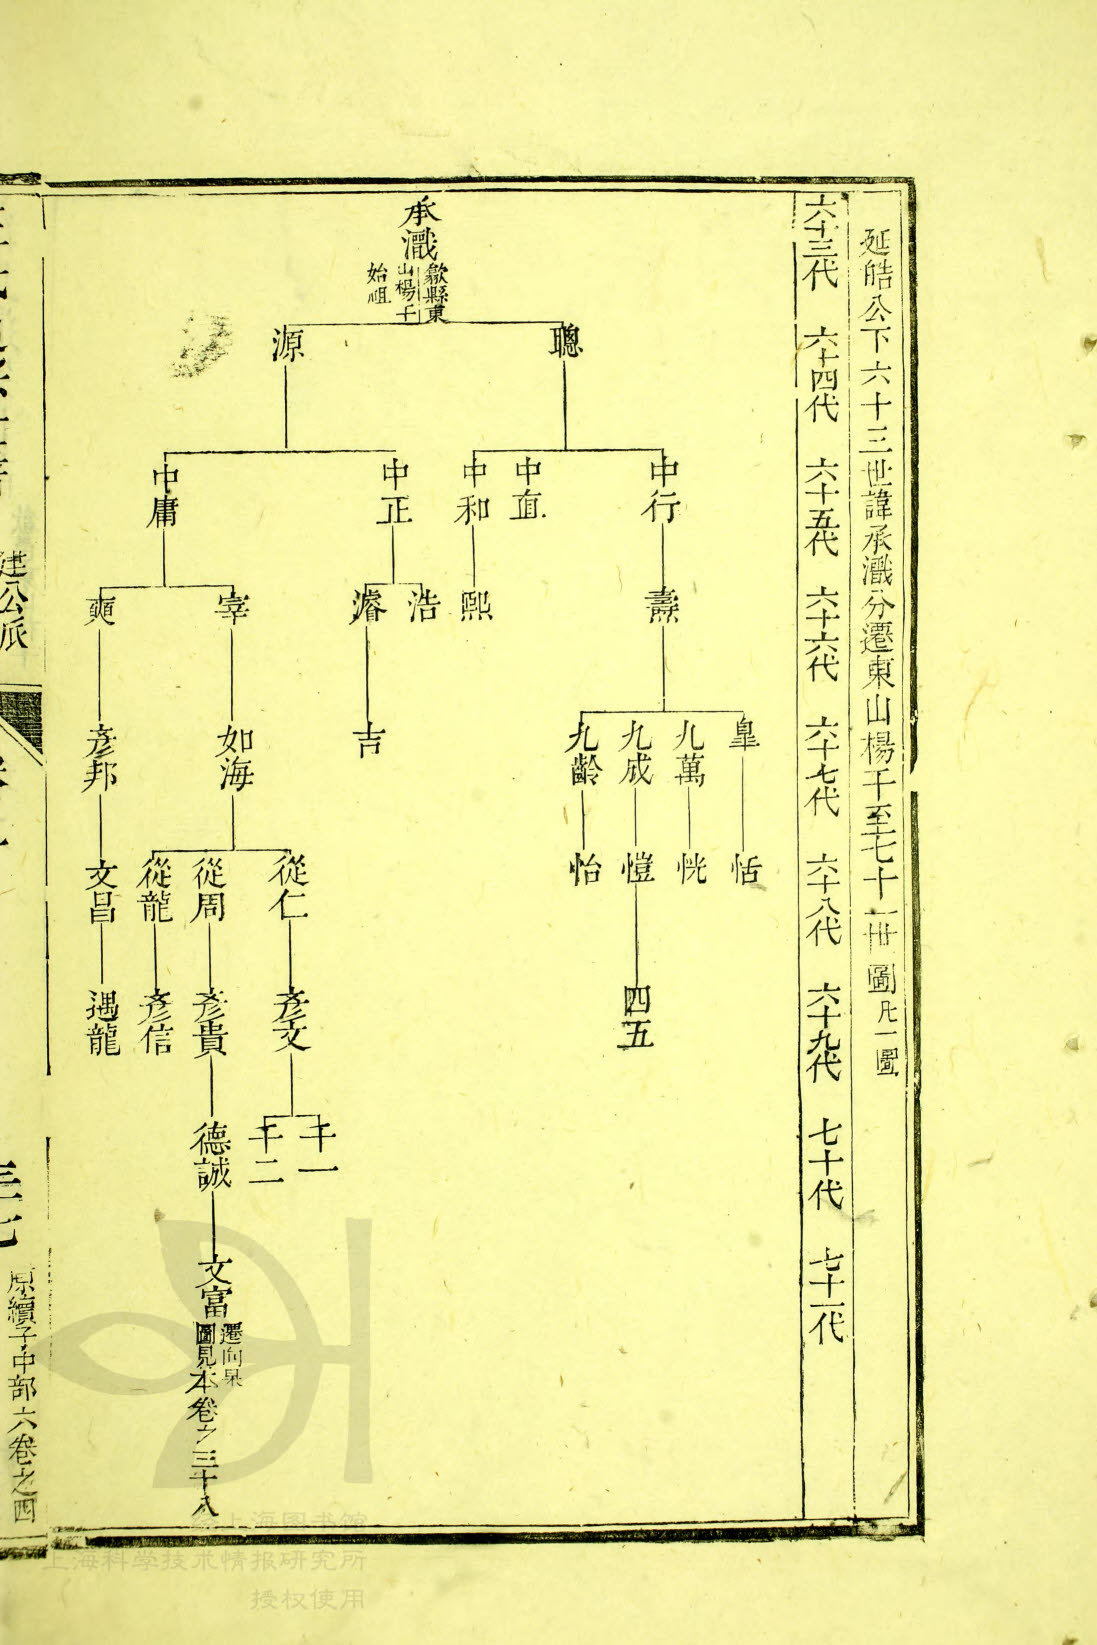 延皓公下六十三世諱承瀐分遷東山楊干至七十一卋圖凡一圖
六十三代 六十四代 六十五代 六十六代 六十七代 六十八代 六十九代 七十代 七十一代
承瀐
歙縣東
山楊干
始祖
聰 源
中行 中直 中和 中正 中庸
燾 熙 浩 濬 宰 奭
皐 九萬 九成 九齡 吉 如海 彥邦
恬 恍 愷 怡 從仁 從周 從龍 文昌
四五 彥文 彥貴 彥信 遇龍
千一 千二 德誠
文富
遷向杲
圖見本卷之三十八
建公派
原續子中部六卷之四
上海图书馆
上海科学技术情报研究所
授权使用